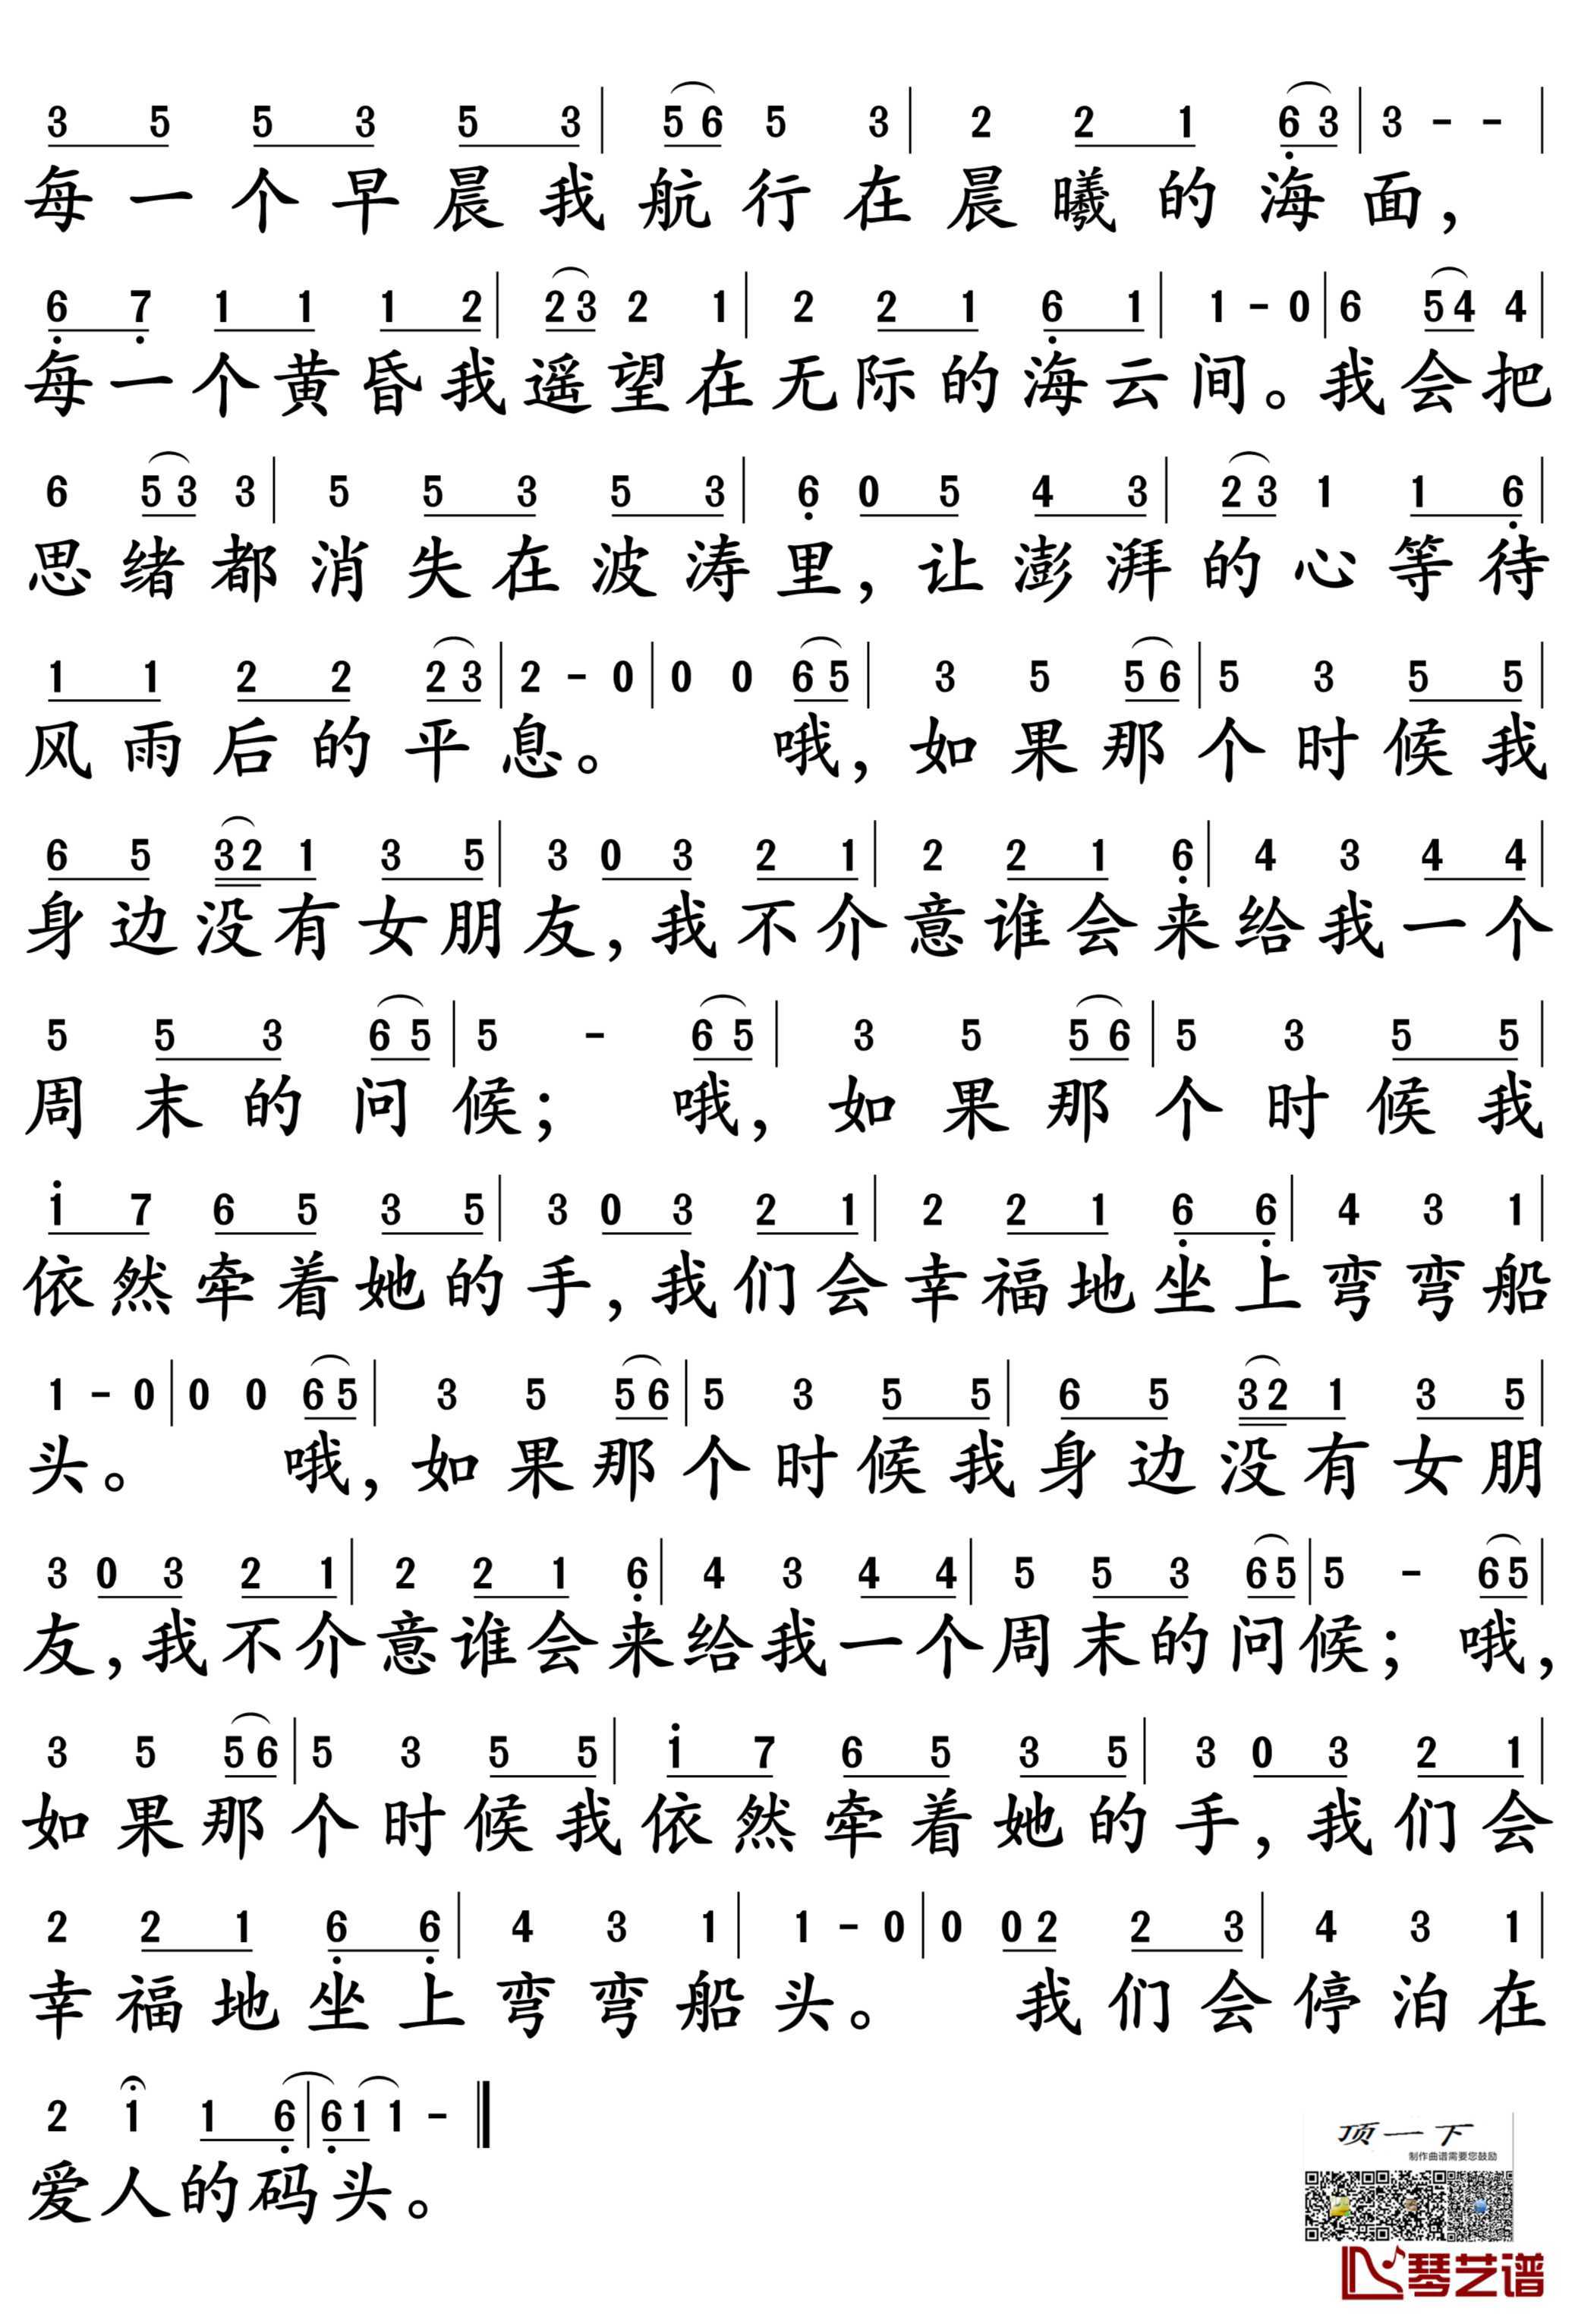 3 5 5 3 5 3 | 5 6 5 3 | 2 2 1 6 3 | 3 - - |
每一个早晨我航行在晨曦的海面，
6 7 1 1 1 2 | 2 3 2 1 | 2 2 1 6 1 | 1 - 0 | 6 5 4 4 |
每一个黄昏我遥望在无际的海云间。我会把
6 5 3 3 | 5 5 3 5 3 | 6 0 5 4 3 | 2 3 1 1 6 |
思绪都消失在波涛里，让澎湃的心等待
1 1 2 2 2 3 | 2 - 0 | 0 0 6 5 | 3 5 5 6 | 5 3 5 5 |
风雨后的平息。 哦，如果那个时候我
6 5 3 2 1 3 5 | 3 0 3 2 1 | 2 2 1 6 | 4 3 4 4 |
身边没有女朋友，我不介意谁会来给我一个
5 5 3 6 5 | 5 - 6 5 | 3 5 5 6 | 5 3 5 5 |
周末的问候； 哦，如果那个时候我
1 7 6 5 3 5 | 3 0 3 2 1 | 2 2 1 6 6 | 4 3 1 |
依然牵着她的手，我们会幸福地坐上弯弯船
1 - 0 | 0 0 6 5 | 3 5 5 6 | 5 3 5 5 | 6 5 3 2 1 3 5 |
头。 哦，如果那个时候我身边没有女朋
3 0 3 2 1 | 2 2 1 6 | 4 3 4 4 | 5 5 3 6 5 | 5 - 6 5 |
友，我不介意谁会来给我一个周末的问候；哦，
3 5 5 6 | 5 3 5 5 | 1 7 6 5 3 5 | 3 0 3 2 1 |
如果那个时候我依然牵着她的手，我们会
2 2 1 6 6 | 4 3 1 | 1 - 0 | 0 0 2 2 3 | 4 3 1 |
幸福地坐上弯弯船头。 我们会停泊在
2 1 1 6 | 6 1 1 - ‖
爱人的码头。
顶一下
制作曲谱需要您鼓励
琴艺谱